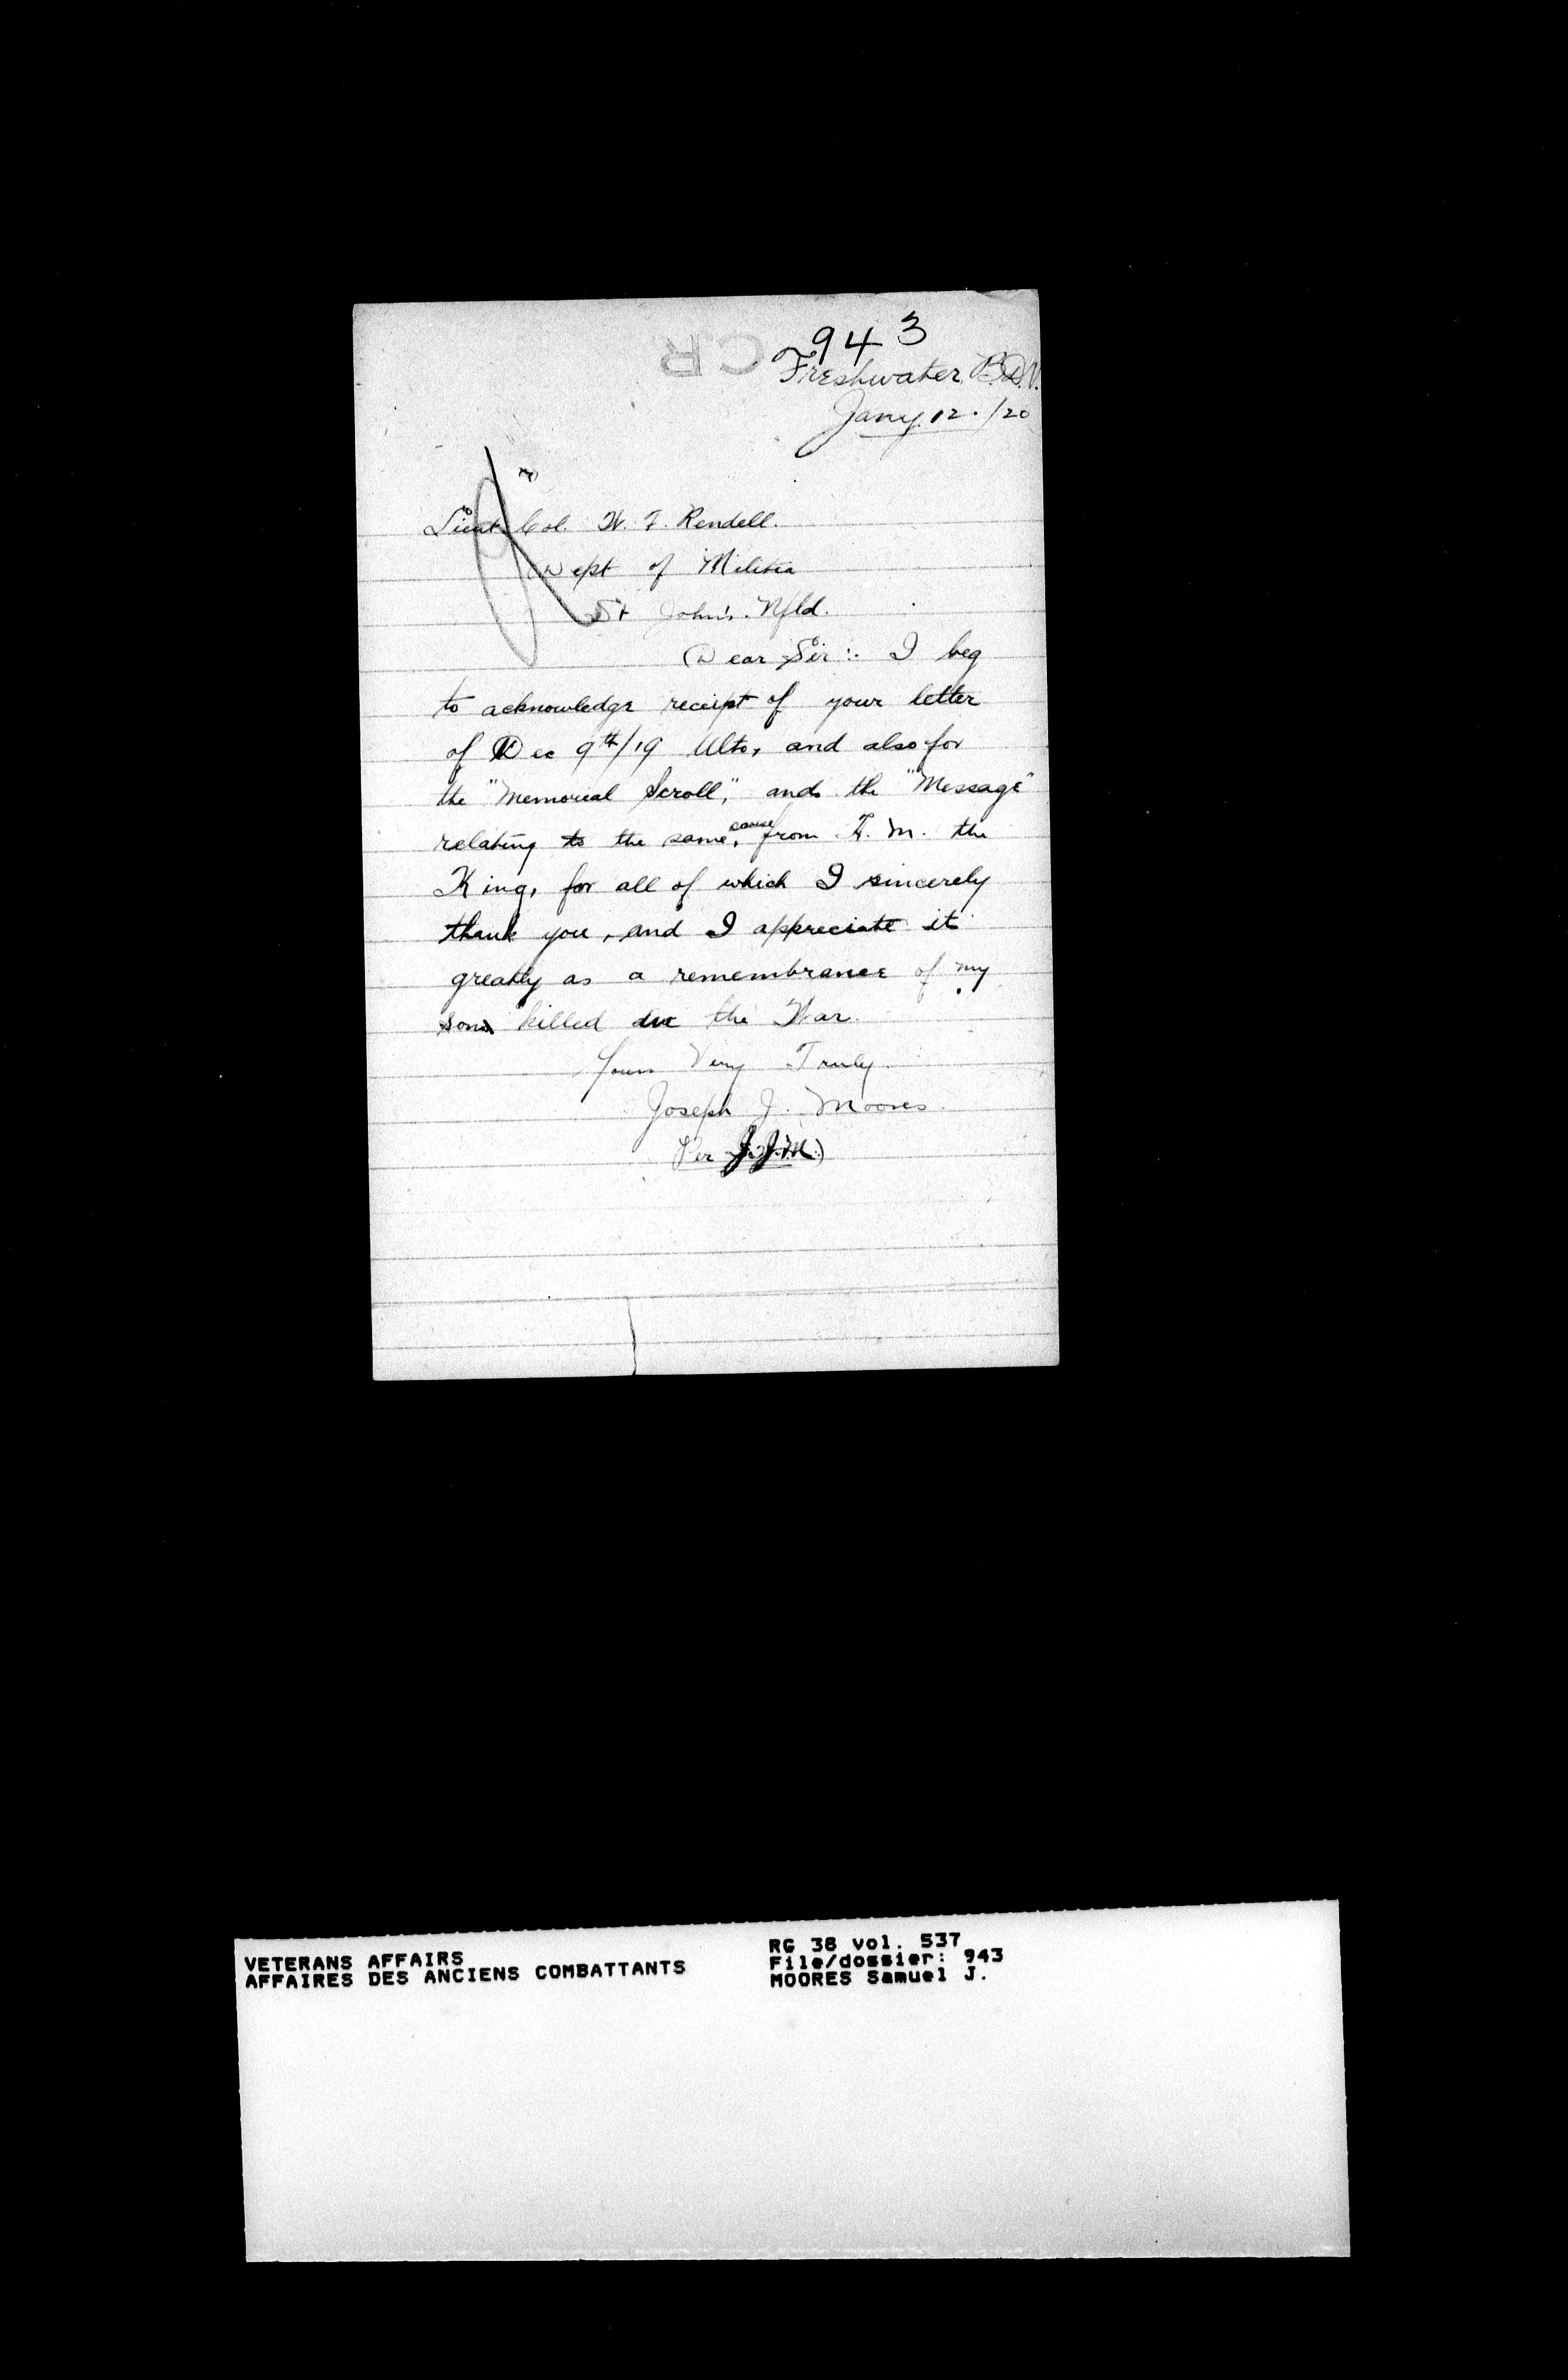 943
CR
Freshwater, B.D.V.
Jany. 12./20
Lieut. Col. W. F. Rendell.
Dept of Militia
St John's. Nfld.
Dear Sir:. I beg
to acknowledge receipt of your letter
of Dec 9th/19 Ulto, and also for
the "Memorial Scroll", and the "Message"
relating to the same, cause from H. M. the
King, for all of which I sincerely
thank you, and I appreciate it
greatly as a remembrance of my
son killed the War.
Yours Very Truly.
Joseph J. Moores.
Per J.J.M.)
VETERANS AFFAIRS
AFFAIRES DES ANCIENS COMBATTANTS
RG 38 vol. 537
File/dossier: 943
MOORES Samuel J.